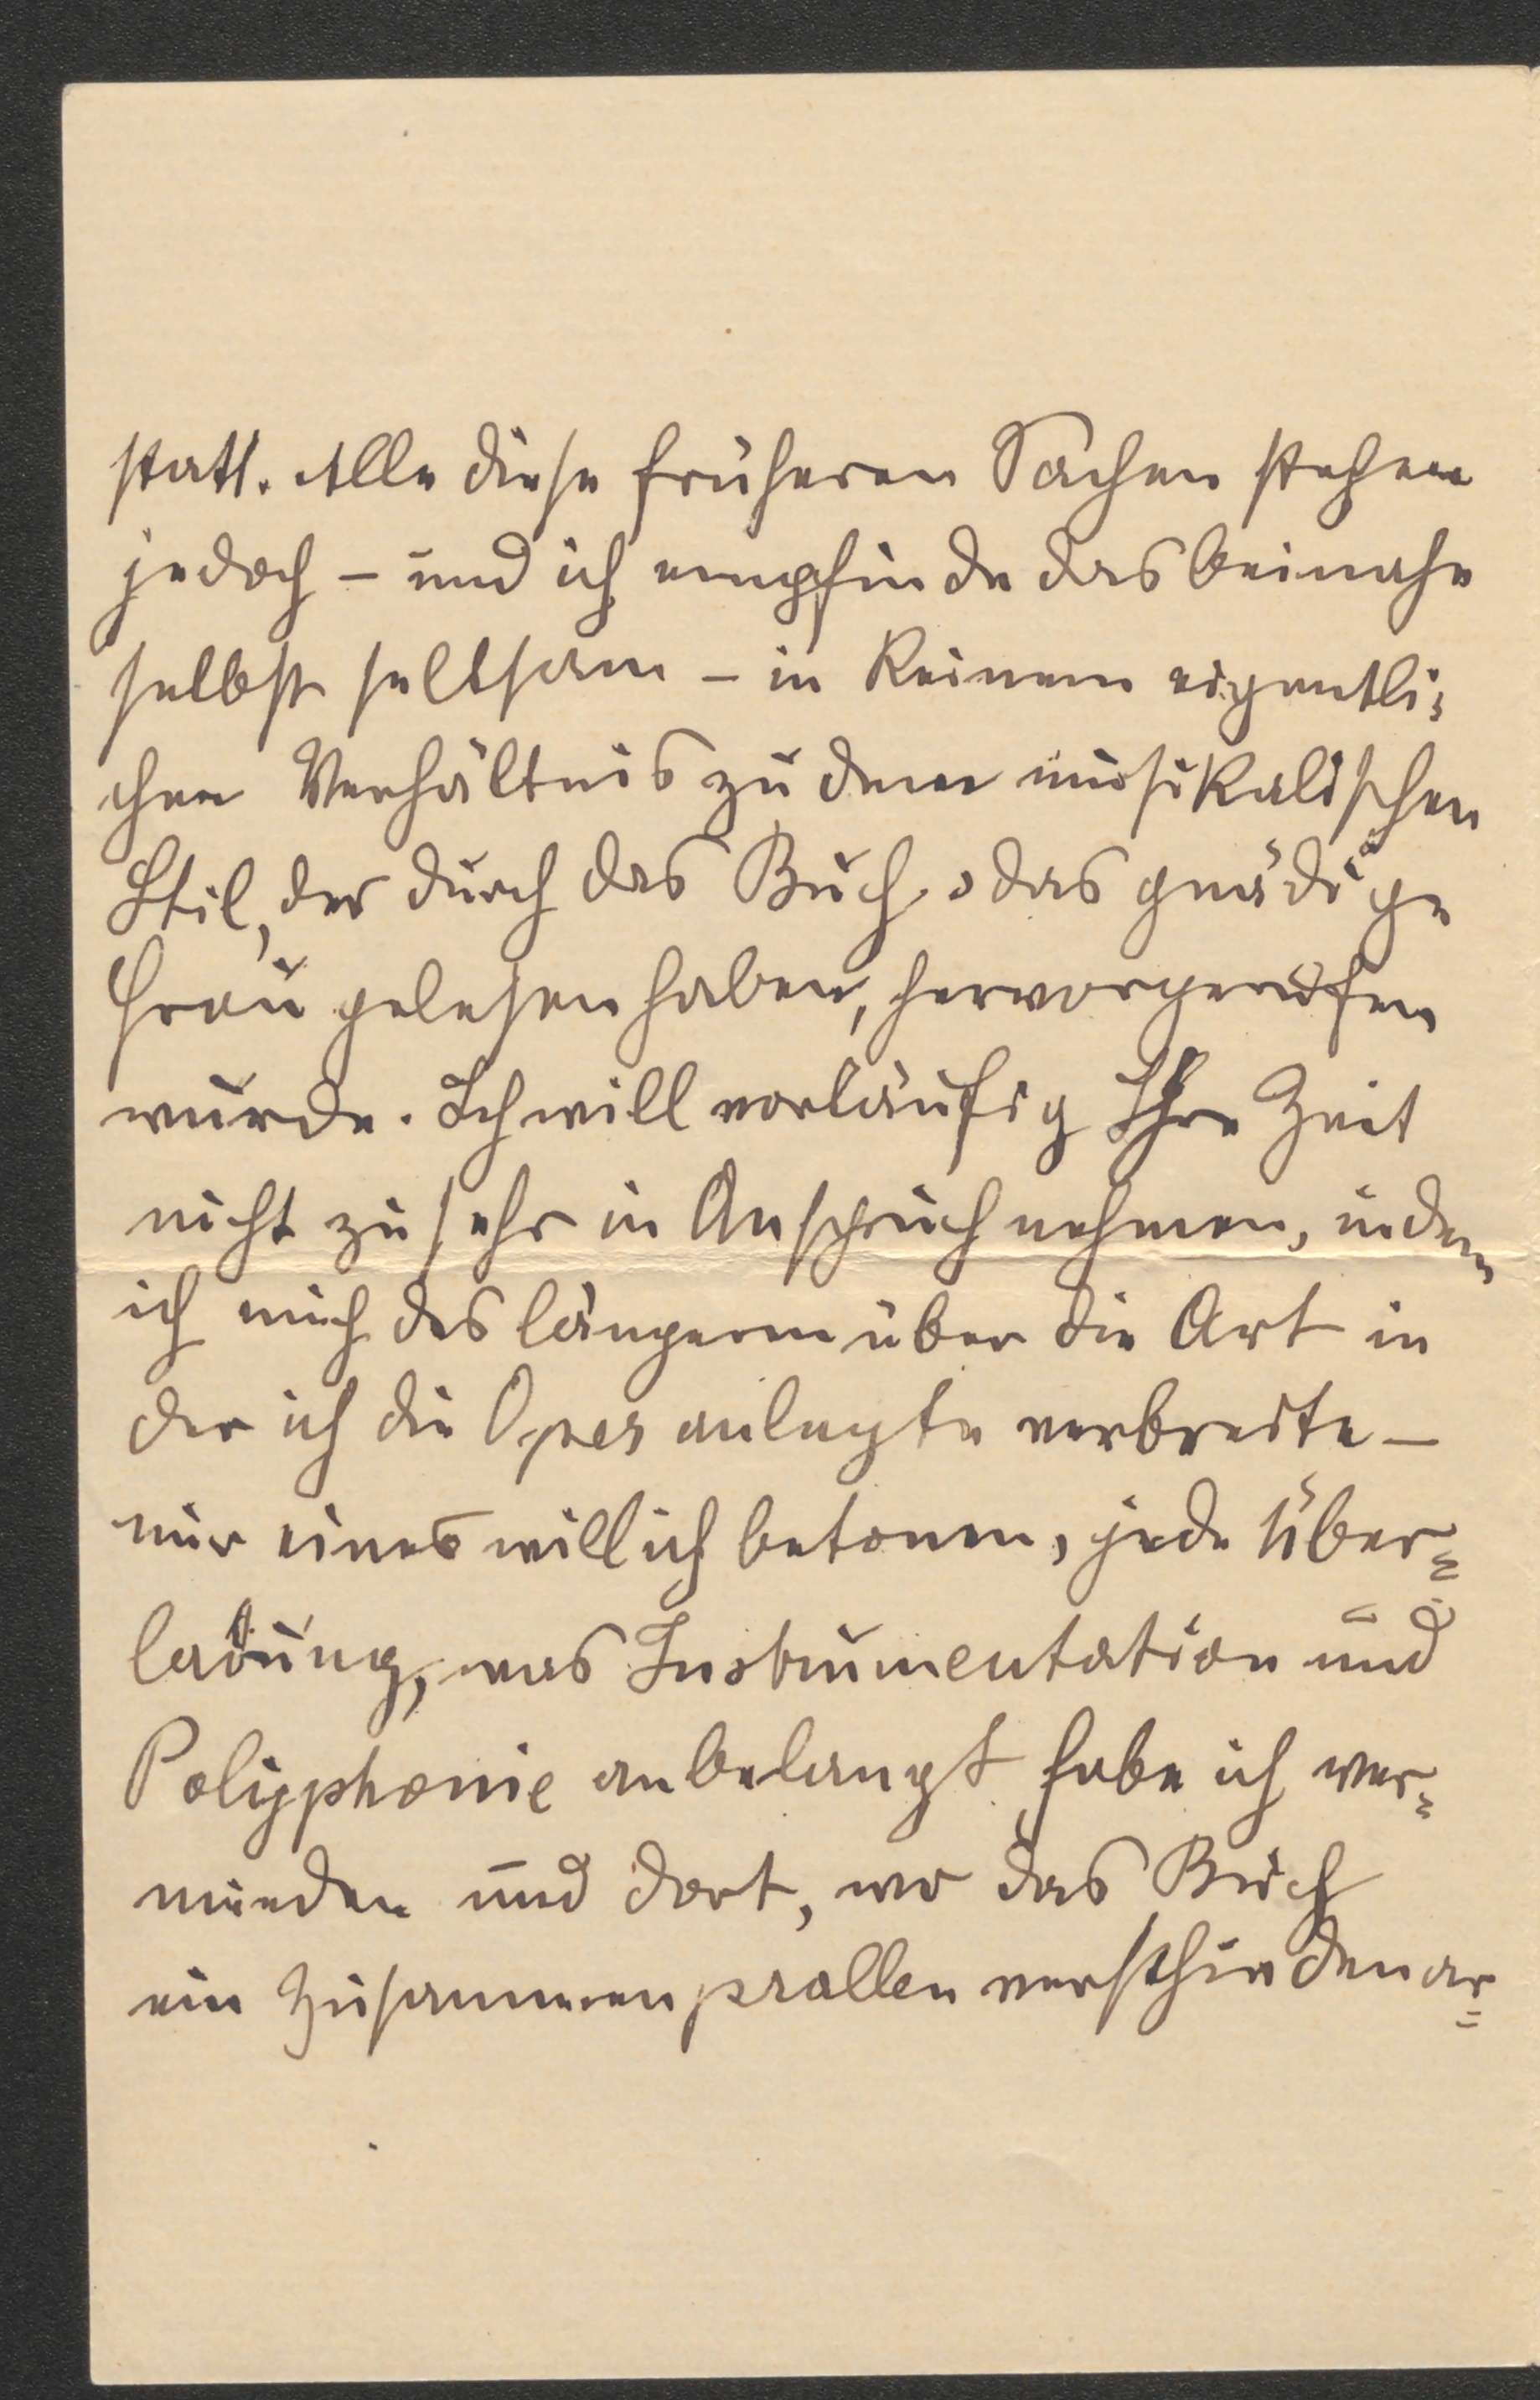 statt. Alle diese früheren Sachen stehen
jedoch – und ich empfinde das beinahe
selbst seltsam – in keinem eigentli-
chen Verhältnis zu dem musikalischen
Stil, der durch das Buch, das gnädige
Frau gelesen haben, hervorgerufen
wurde. Ich will vorläufig Ihre Zeit
nicht zu sehr in Anspruch nehmen, indem
ich mich des längerm über die Art in
der ich die Oper anlegte verbreite –
nur eines will ich betonen, jede Über=
ladung, was Instrumentation und
Polyphonie anbelangt habe ich ver=
mieden und dort, wo das Buch
ein Zusammenprallen verschiedenar=